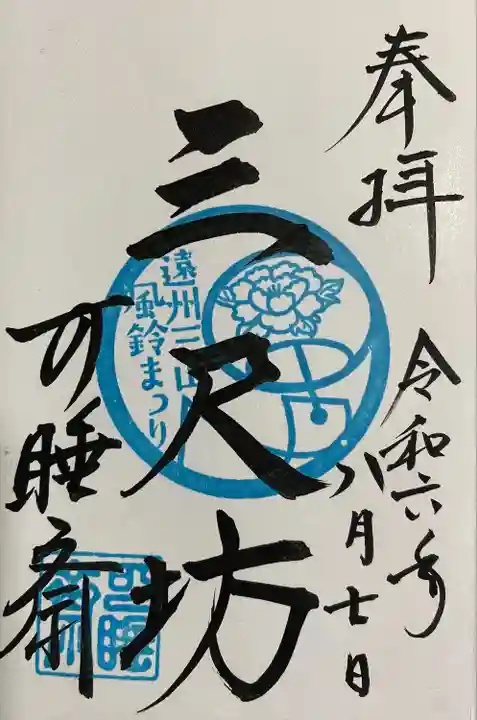 奉拝
令和六年
八月七日
三尺坊
可睡斎
遠州三山
風鈴まつり
可睡